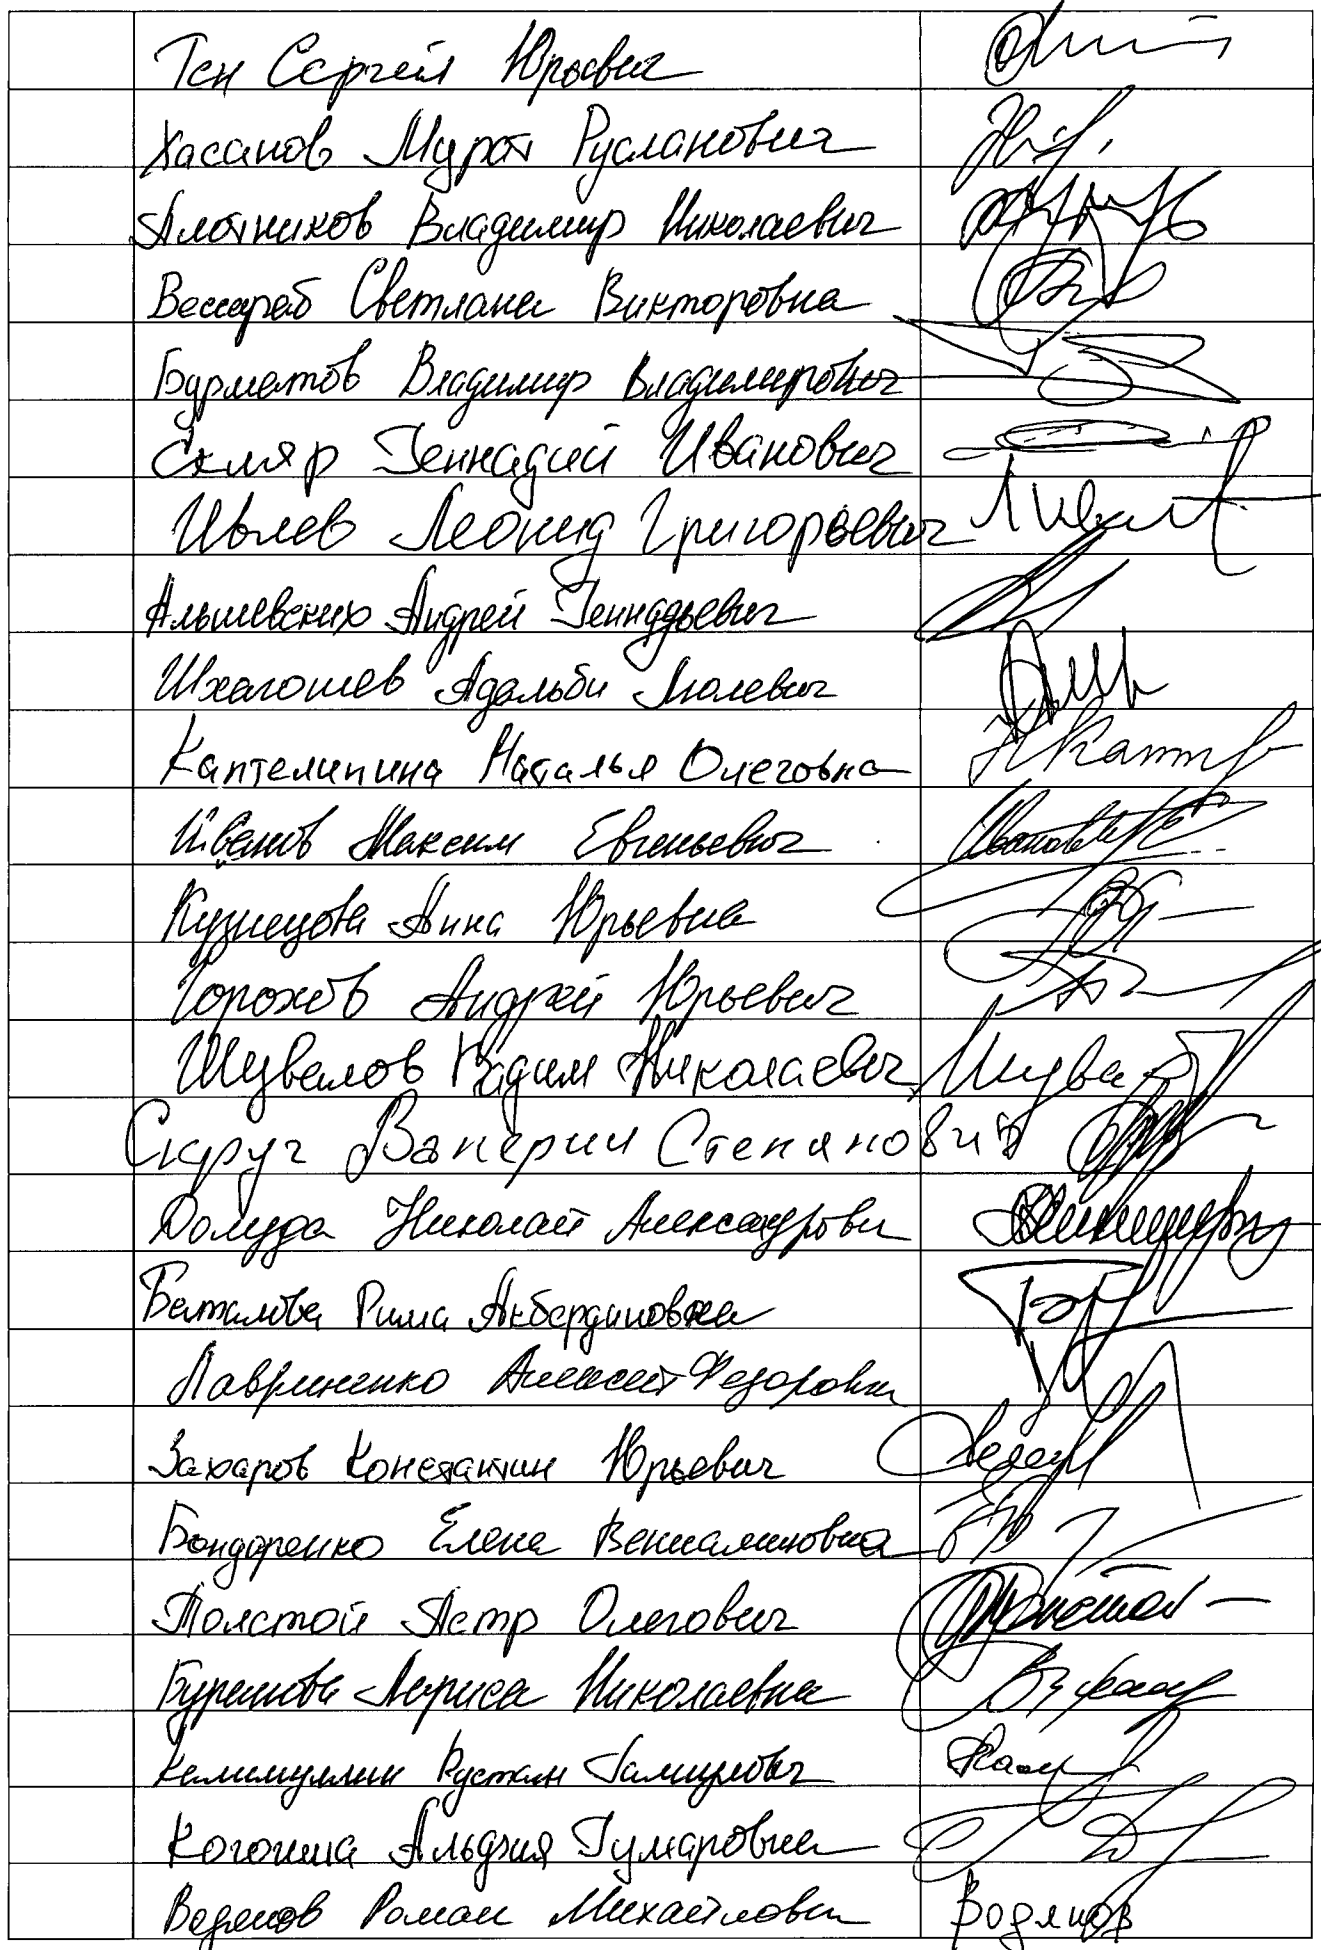 Тен Сергей Юрьевич
Хасанов Мурат Русланович
Плотников Владимир Николаевич
Бессараб Светлана Викторовна
Бурматов Владимир Владимирович
Скляр Геннадий Иванович
Ивлев Леонид Григорьевич
Альшевских Андрей Геннадьевич
Шхагошев Адальби Люлевич
Каптелинина Наталья Олеговна
Иванов Максим Евгеньевич
Кузнецова Анна Юрьевна
Горохов Андрей Юрьевич
Шувалов Вадим Николаевич Шувал
Скруг Валерий Степанович
Долуда Николай Александрович
Баталова Рима Акбердиновна
Лавриненко Алексей Федорович
Захаров Константин Юрьевич
Бондаренко Елена Вениаминовна
Толстой Петр Олегович
Буранова Лариса Николаевна
Калимуллин Рустам Гамирович
Когогина Альфия Гумаровна
Водянов Роман Михайлович Водянов